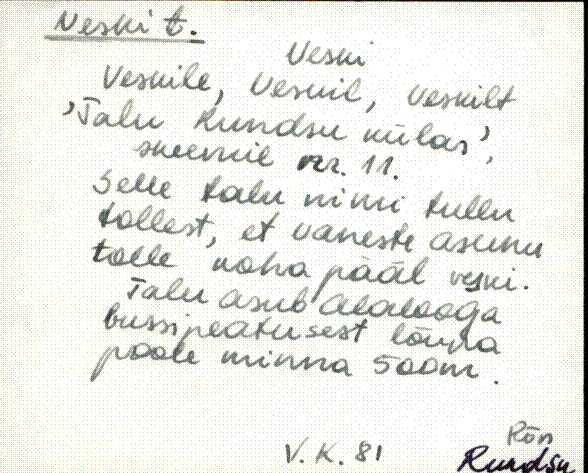 Veski t.
Veski
Veskile, Veskil, Veskilt
'Talu Rundsu külas',
skeemil nr. 11.
Selle talu nimi tullu
tollest, et vaneste asunu
tolle koha pääl veski.
Talu asub Alalooga
bussipeatusest lõuna
poole minna 500m.
V. K. 81
Rõn
Rundsu